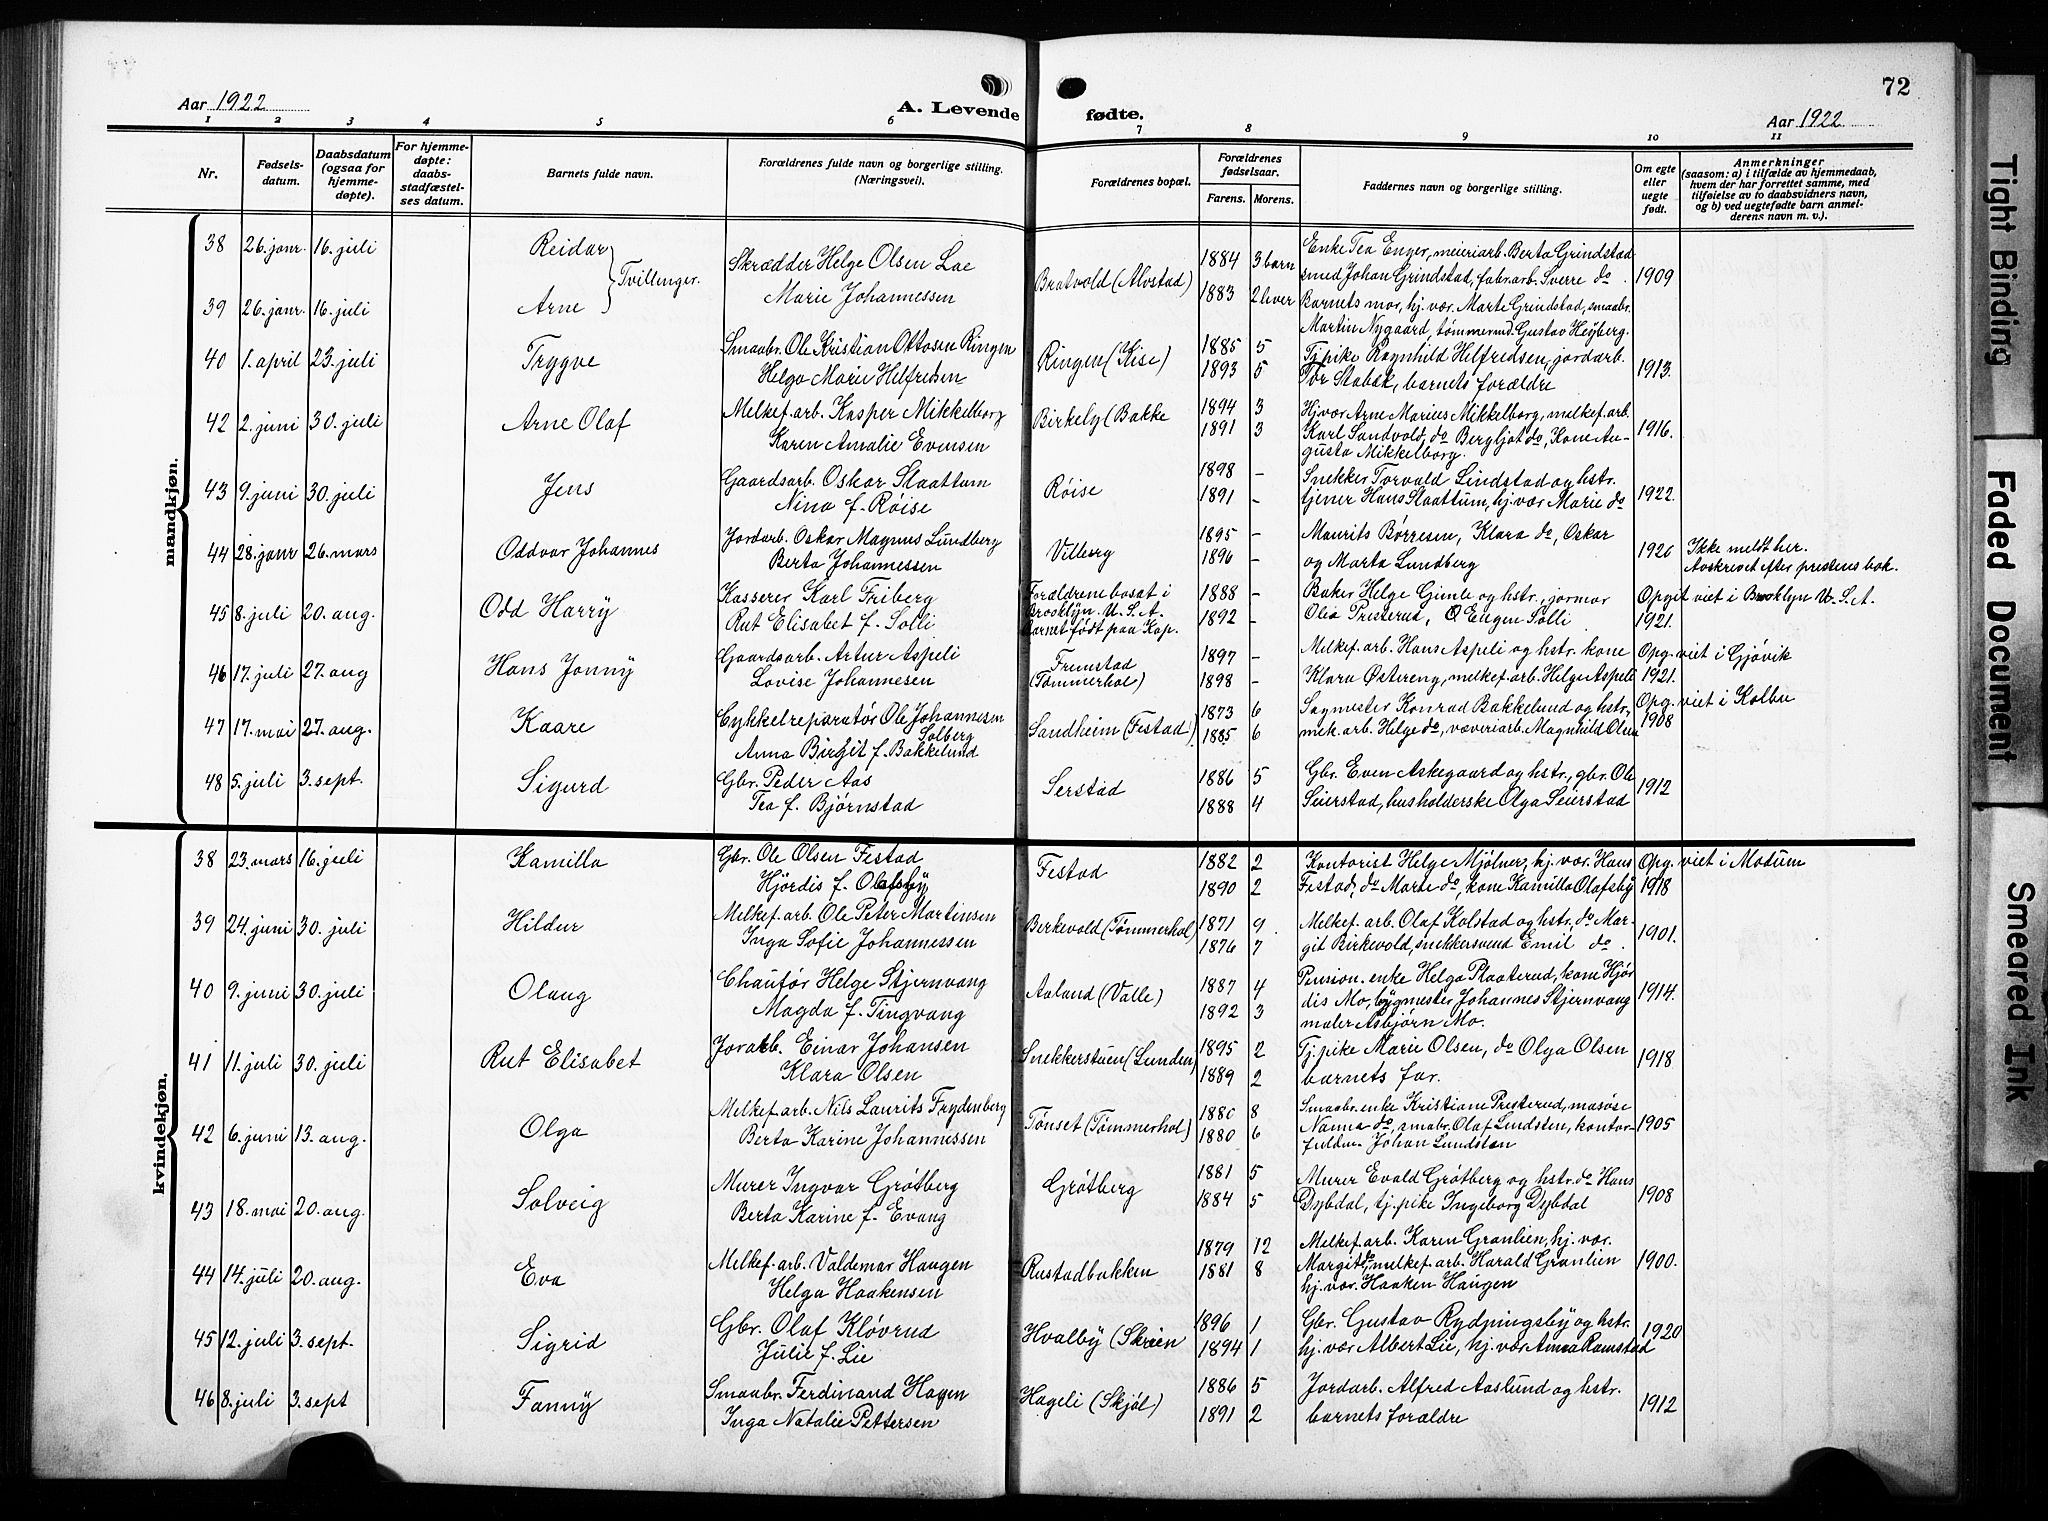 72
Aar 1922 A. Levende fødte. Aar 1922
1 2 3 4 5 6 7 8 9 10 11
Nr. Fødsels-datum. Daabsdatum (ogsaa for hjemme-døpte). For hjemme-døpte: daabs-stadfæstel-ses datum. Barnets fulde navn. Forældrenes fulde navn og borgerlige stilling. (Næringsvei). Forældrenes bopæl. Forældrenes fødselsaar. Farens. Morens. Faddernes navn og borgerlige stilling. Om egte eller uegte født. Anmerkninger (saasom: a) i tilfælde av hjemmedaab, hvem der har forrettet samme, med tilføielse av to daabsvidners navn, og b) ved uegtefødte barn anmel-derens navn m. v.).
mandkjøn.
38 26. janr. 16. juli Reidar
39 26. janr. 16. juli Arne
Tvillinger.
Skrædder Helge Olsen Loe
Marie Johannessen
Bratvold (Alvstad)
1884 3 barn
1883 2 lever
Enke Tea Enger, meieriarb. Berta Grindstad
smed Johan Grindstad, fabr.arb. Sverre do
Barnets mor, hj. vær. Marte Grindstad, smaabr.
Martin Nygaard, tømmermd. Gustav Heyberg.
1909
40 1. april 23. juli Trygve
Smaabr. Ole Kristian Ottosen Ringen
Helga Marie Helfredsen
Ringen (Kise)
1885 5
1893 5
Tj. pike Ragnhild Helfredsen, jordarb.
Tor Stabek, barnets forældre
1913.
42 2. juni 30. juli Arne Olaf
Melkef. arb. Kasper Mikkelborg
Karen Amalie Evensen
Birkely (Bakke
1894 3
1891 3
Hj vær Arne Marius Mikkelborg, melkef. arb.
Karl Sandvold, do Bergljot do, Kone Au-
gusta Mikkelborg.
1916.
43 9. juni 30. juli Jens
Gaardsarb. Oskar Slaattum
Nina f. Røise
Røise
1898 –
1891 –
Snekker Torvald Lindstad og hstr.
tjener Hans Slaattum, hj. vær Marie do
1922.
44 28. janr 26. mars Oddvar Johannes
Jordarb. Oskar Magnus Lundberg
Berta Johannessen
Vilberg
1895 –
1896 –
Maurits Børresen, Klara do, Oskar
og Marta Lundberg
1920
Ikke meldt her.
Avskrevet efter prestens bok.
45 8. juli 20. aug. Odd Harry
Kasserer Karl Friberg
Rut Elisabet f. Solli
Forældrene bosat i
Brooklyn. U. S. A.
Barnet født paa Kap.
1888 –
1892 –
Baker Helge Gimle og hstr., jormor
Olia Presterud, O Eugen Solli
Opgit viet i Brooklyn U. S. A.
1921.
46 17. juli 27. aug Hans Jonny
Gaardsarb. Artur Aspeli
Lovise Johannesen
(Tømmerhol)
1897 –
1898 –
Melkef. arb. Hans Aspeli og hstr. kone
Klara Østereng, melkef. arb. Helge Aspeli
Opg. viet i Gjøvik
1921.
47 17. mai 27. aug. Kaare
Cykkelreparatør Ole Johannesen
Solberg
Anna Birgit f. Bakkelund
Sandheim (Festad)
1873 6
1885 6
Sagmester Konrad Bakkelund og hstr,
mek. arb. Helge do, væveriarb. Magnhild Olsen
Opg. viet i Kolbu
1908
48 5. juli 3. sept. Sigurd
Gbr. Peder Aas
Tea f. Bjørnstad
Serstad
1886 5
1888 4
Gbr. Even Askegaard og hstr., gbr. Ole
Seierstad, husholderske Olga Seierstad
1912
kvindekjøn.
38 23. mars 16. juli Kamilla
Gbr. Ole Olsen Festad
Hjørdis f. Olafsby
Festad
1882 2
1890 2
Kontorist Helge Mjølner, hj. vær. Hans
Festad, do Marte do, kone Kamilla Olafsby
Opg. viet i Modum
1918
39 24. juni 30. juli Hildur
Melkef. arb. Ole Peter Martinsen
Inga Sofie Johannessen
Berkevold (Tømmerhol)
1871 9
1876 7
Melkef. arb. Olaf Kolstad og hstr., do Mar-
git Birkevold, snekkersvend Emil do
1901.
40 9. juni 30. juli Olaug
Chaufør Helge Stjernvang
Magda f. Tingvang
Aaland (Valle)
1887 4
1892 3
Pension. enke Helga Plaaterud, kone Hjør
dis Mo, bygmester Johannes Stjernvang
maler Asbjørn Mo.
1914.
41 11. juli 30. juli Rut Elisabet
Jordarb. Einar Johansen
Klara Olsen
Snekkerstuen (Lunden)
1895 2
1889 2
Tj. pike Marie Olsen, do Olga Olsen
barnets far.
1918
42 6. juni 13. aug. Olga
Melkef. arb. Nils Laurits Frydenberg
Berta Karine Johannessen
Tønset (Tømmerhol)
1880 8
1880 6
Smaabr. enke Kristiane Presterud, masøse
Nanna do, smabr. Olaf Lundsten, kontor-
Johan Lundsten
1905
43 18. mai 20. aug. Solveig
Murer Ingvar Grøtberg
Berta Karine f. Evang
Grøtberg
1881 5
1884 5
Murer Evald Grøtberg og hstr. do Hans
Dybdal, tj. pike Ingeborg Dybdal
1908
44 14. juli 20. aug. Eva
Melkef. arb. Valdemar Haugen
Helga Haakensen
Rustadbakken
1879 12
1881 8
Melkef. arb. Karen Granlien, hj. vær.
Margit do, melkef. arb. Harald Granlien
hj. vær. Haaken Haugen
1900.
45 12. juli 3. sept. Sigrid
Gbr. Olaf Kløvrud
Julie f. Lie
Hvalby (Skrien
1896 1
1894 1
Gbr. Gustav Rydningsby og hstr.
hj. vær Albert Lie, hj. vær Anna Ramstad
1920
46 8. juli 3. sept Fanny
Smaabr. Ferdinand Hagen
Inga Natalie Pettersen
Hageli (Skjøl)
1886 5
1891 2
Jordarb. Alfred Aaslund og hstr.
barnets forældre
1912
Tight Binding
Faded Document
Smeared Ink